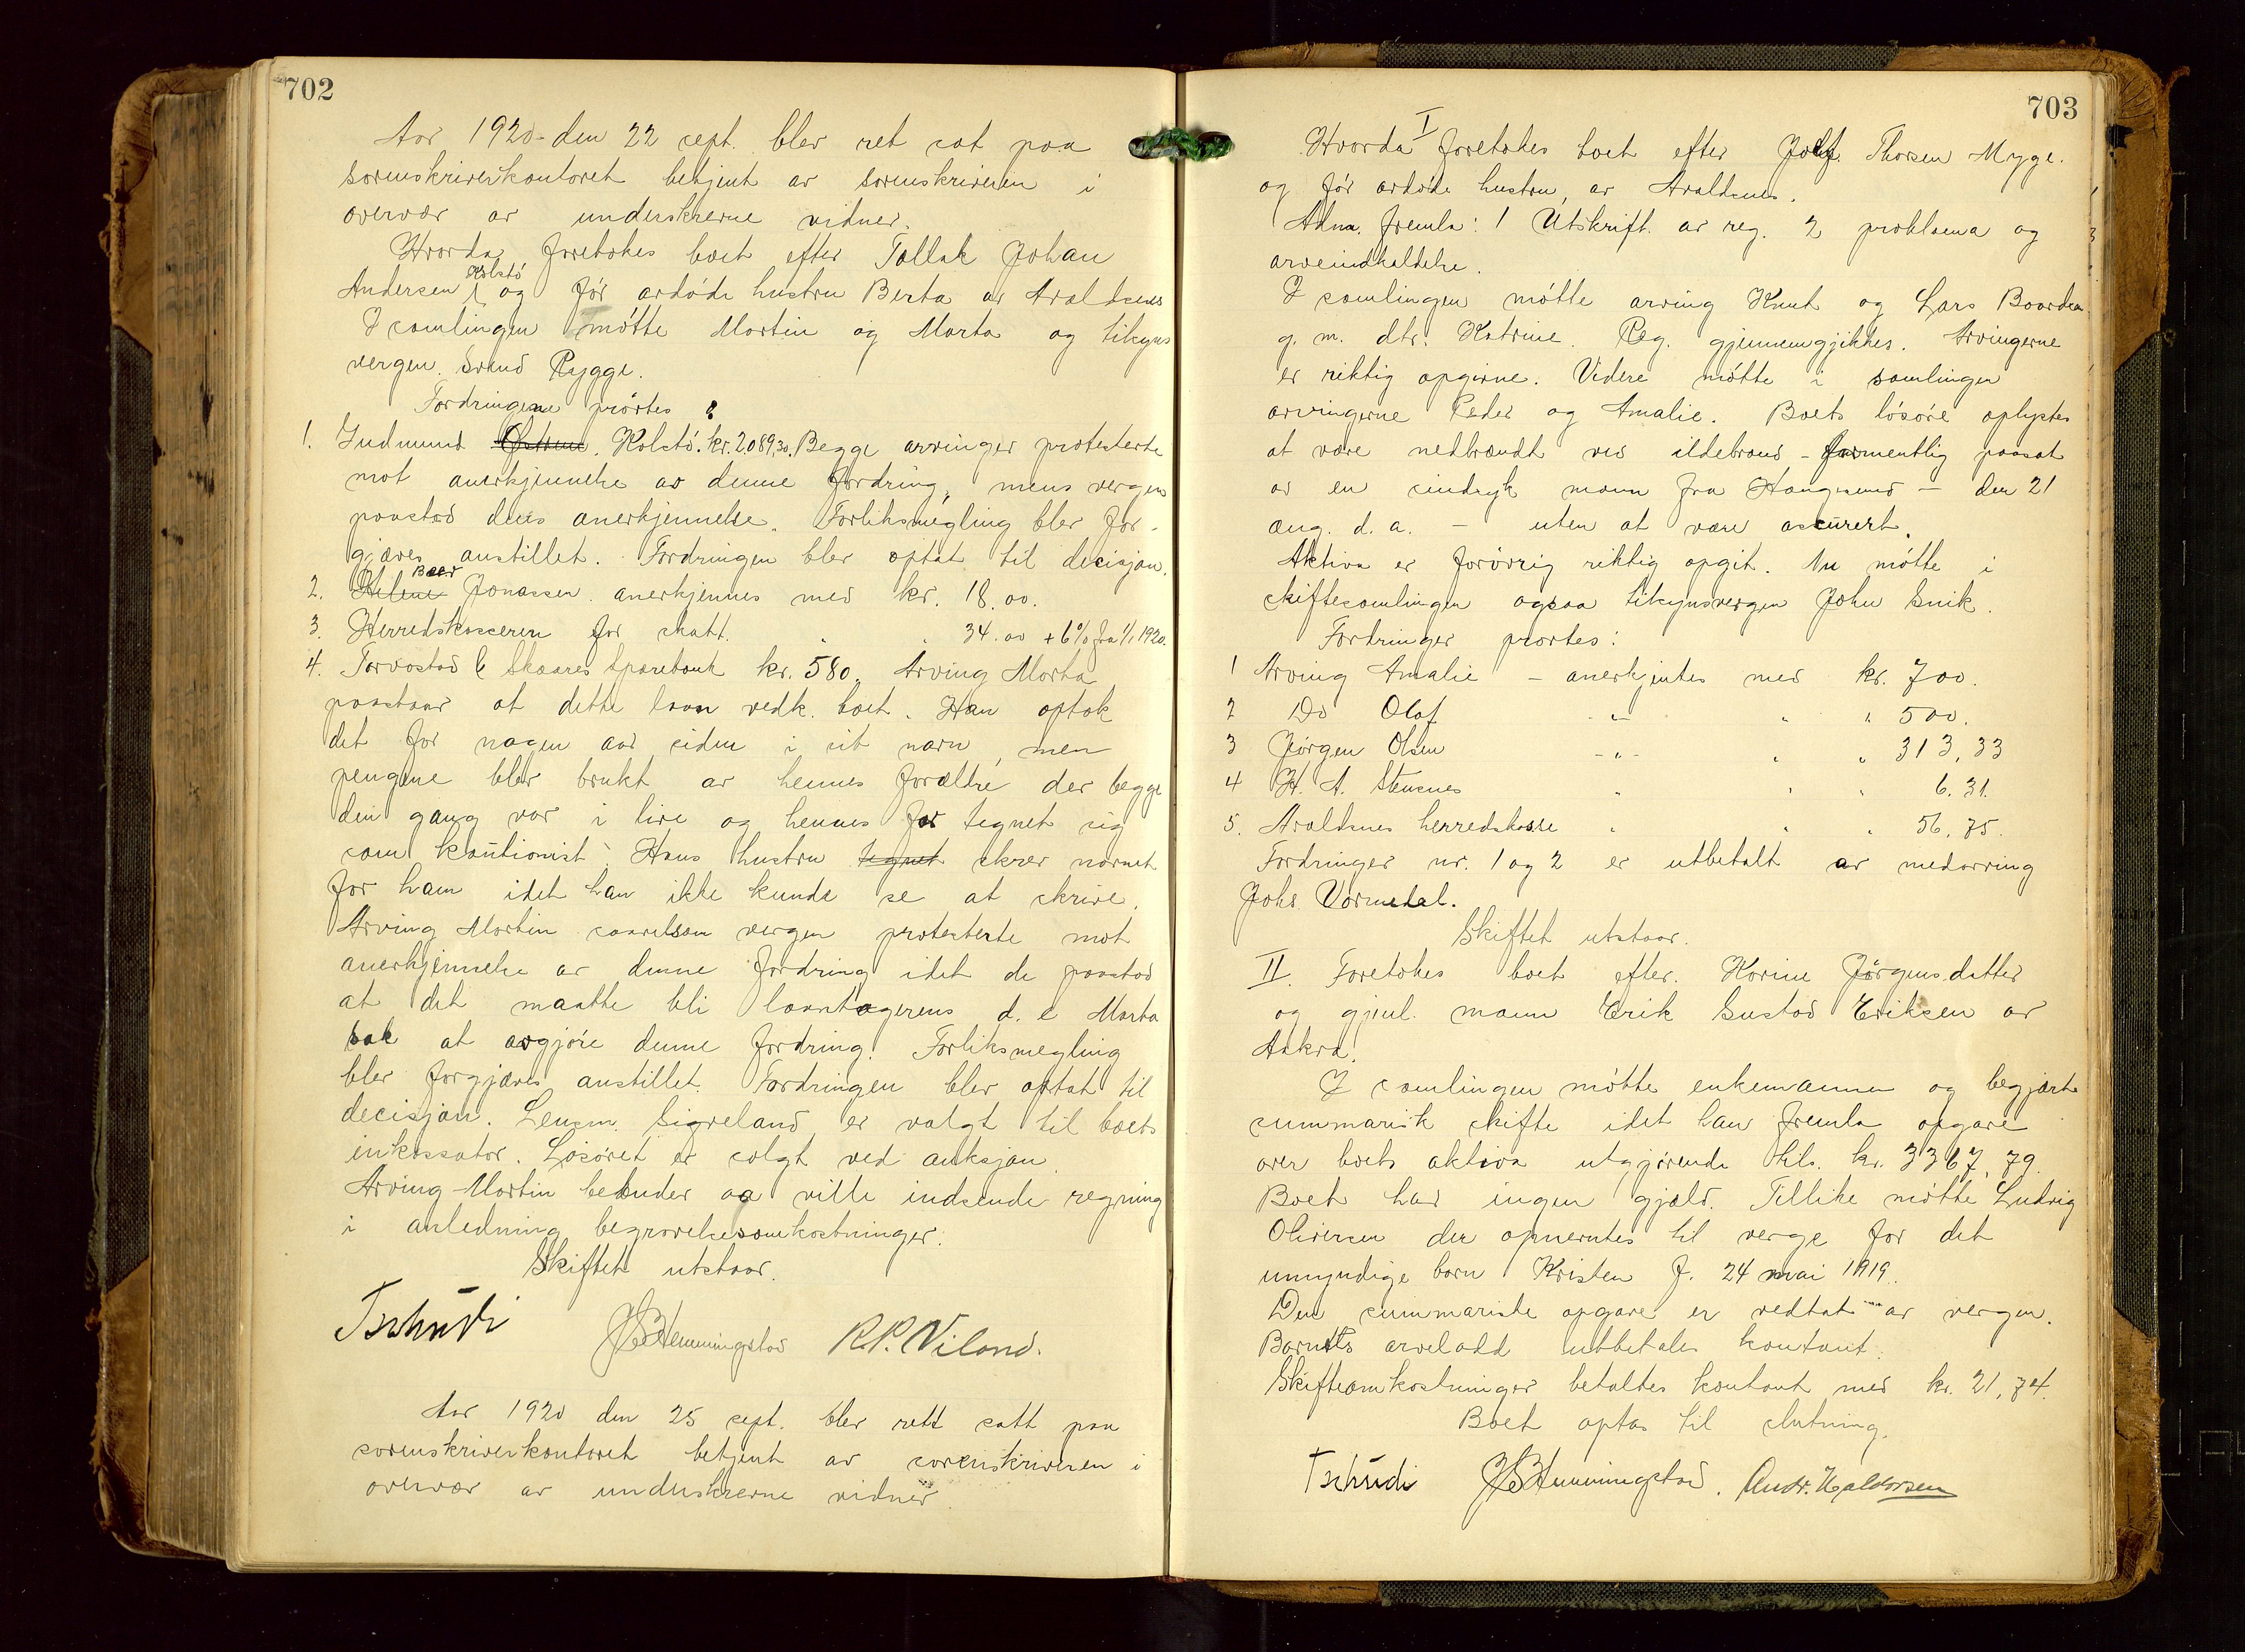 702
Aar 1920 den 22 sept. blev ret sat paa
sorenskriverkontoret betjent av sorenskriveren i
overvær av underskrevne vidner.
Hvorda foretokes boet efter Tallak Johan
Kolstö
Andersen og før avdøde hustru Berta av Avaldsnes
I samlingen møtte Martin og Marta og tilsyns
vergen Svend Rygge.
Fordringene prøvtes :
1. Gudmund Kolstö. kr. 2089,30. Begge arvinger protesterte
mot anerkjennelse av denne fordring, mens vergen
paastod dens anerkjennelse. Forliksmegling blev for-
gjæves anstillet. Fordringen blev optat til decisjon.
2. Helene Jonassen anerkjennes med kr. 18.00.
3. Herredskasseren for skatt " " 34.00 + 6% fra 1/1 1920.
4. Torvastad & Skaares Sparebank kr. 580. Arving Marta
paastaar at dette laan vedk. boet. Han optok
det for nogen aar siden i sit navn, men
pengene blev brukt av hennes forældre der begge
den gang var i live og hennes far tegnet sig
som kautionist. Hans hustru tegnet skrev navnet
for ham idet han ikke kunde se at skrive.
Arving Martin saavelsom vergen protesterte mot
anerkjennelse av denne fordring idet de paastod
at det maatte bli laantagerens d. e Marta
sak at avgjøre denne fordring. Forliksmegling
blev forgjæves anstillet. Fordringen blev optat til
decisjon. Lensm. Sigveland er valgt til boets
inkassator. Løsøret er solgt ved auksjon.
Arving Martin bebuder og ville indsende regning
i anledning begravelsesomkostninger.
Skiftet utstaar.
Tschudi JB Hemmingstad R.P. Viland.
Aar 1920 den 25 sept. blev rett satt paa
sorenskriverkontoret betjent av sorenskriveren i
overvær av underskrevne vidner.
703
I
Hvorda foretokes boet efter Thorsen Myge.
og før avdøde hustru, av Avaldsnes.
Adm. fremla: 1 Utskrift av reg. 2 proklama og
arveindkaldelse.
I samlingen møtte arving Knut og Lars Baardsen
g. m. dtr. Katrine. Reg. gjennemgikkes. Arvingerne
er riktig opgivne. Videre møtte i samlingen
arvingerne Peder og Amalie. Boets løsøre oplystes
at være nedbrændt ved ildebrand - formentlig paasat
av en sindsyk mann fra Haugesund - den 21
aug. d. a. - uten at være assurert.
Aktiva er forøvrig riktig opgit. Nu møtte i
skiftesamlingen ogsaa tilsynsvergen John Gnik.
Fordringer prøvtes:
1 Arving Amalie - anerkjentes med kr. 700.
2 Do Olaf - " - " " 500.
3 Jørgen Olsen - " - " " 313,33
4 H. A. Stensnes " " " 6.31.
5. Avaldsnes herredskasse " " " 56,75.
Fordringer nr. 1 og 2 er utbetalt av medarving
Johs Vormedal.
Skiftet utstaar.
II. Foretokes boet efter Korine Jørgensdatter
og gjenl. mann Erik Gustav Eriksen av
Aakra.
I samlingen møtte enkemannen og begjærte
summarisk skifte idet han fremla opgave
over boets aktiva utgjørende tils. kr. 3367,79.
Boet har ingen gjæld. Tillike møtte Ludvig
Oliversen der opnevntes til verge for det
umyndige barn Kristen f. 24 mai 1919.
Den summariske opgave er vedtat av vergen.
Barnets arvelodd utbetales kontant.
Skifteomkostninger betaltes kontant med kr. 21,74.
Boet optas til slutning.
Tschudi JB Hemmingstad. Andr. Haldorsen